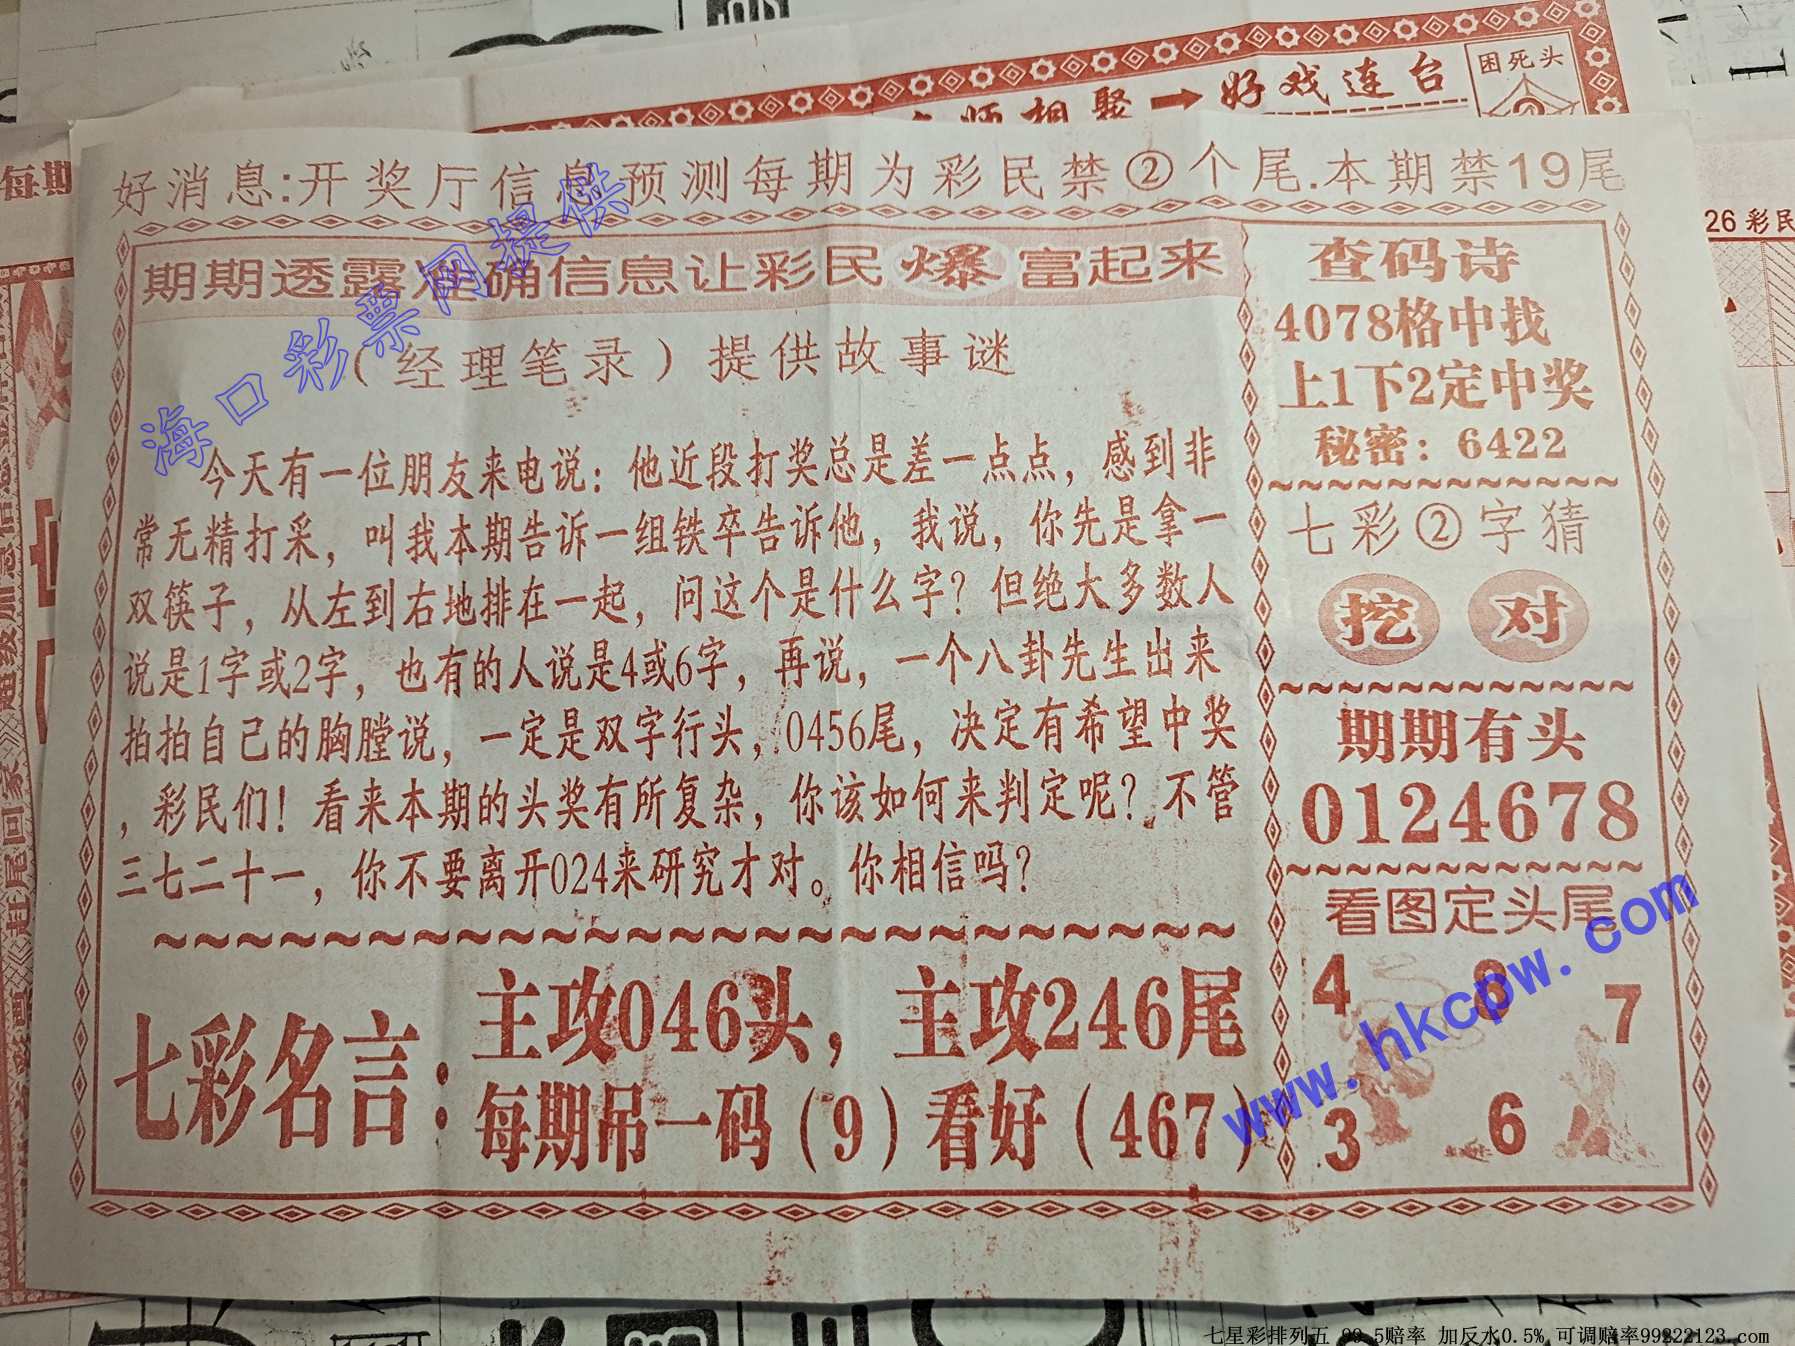 困死头
好戏连台
每期
好消息:开奖厅信息预测每期为彩民禁②个尾.本期禁19尾
26彩民
期期透露准确信息让彩民爆富起来
(经理笔录)提供故事谜
今天有一位朋友来电说：他近段打奖总是差一点点，感到非
常无精打采，叫我本期告诉一组铁卒告诉他，我说，你先是拿一
双筷子，从左到右地排在一起，问这个是什么字？但绝大多数人
说是1字或2字，也有的人说是4或6字，再说，一个八卦先生出来
拍拍自己的胸膛说，一定是双字行头，0456尾，决定有希望中奖
，彩民们！看来本期的头奖有所复杂，你该如何来判定呢？不管
三七二十一，你不要离开024来研究才对。你相信吗？
七彩名言：
主攻046头，主攻246尾
每期吊一码(9)看好(467)
查码诗
4078格中找
上1下2定中奖
秘密：6422
七彩②字猜
挖 对
期期有头
0124678
看图定头尾
4 8 7
3 6
海口彩票网提供
www.hkcpw.com
七星彩排列五 99.5赔率 加反水0.5% 可调赔率99222123.com